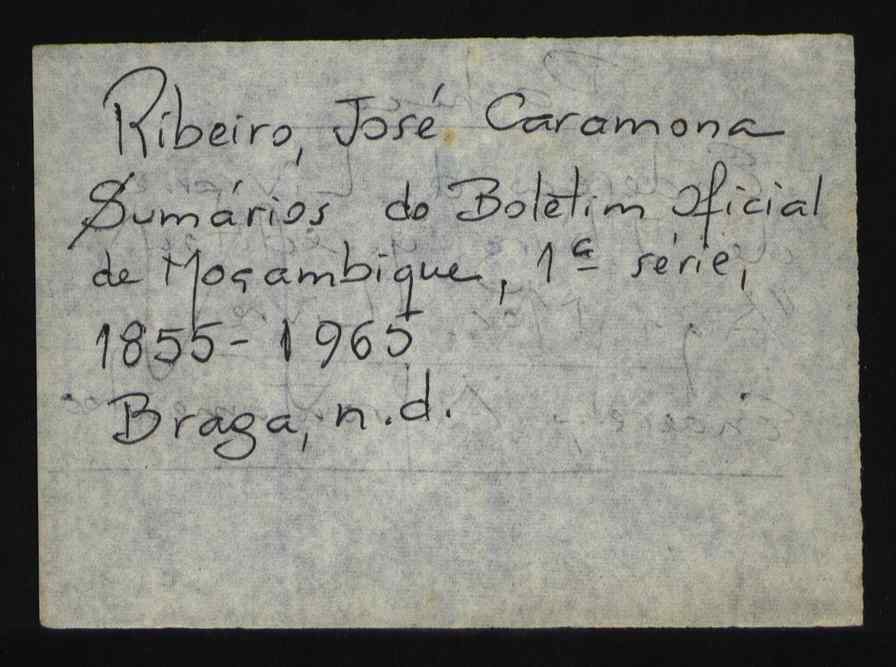 Ribeiro, José Caramona
Sumários do Boletim Oficial
de Moçambique, 1ª série,
1855-1965
Braga, n.d.